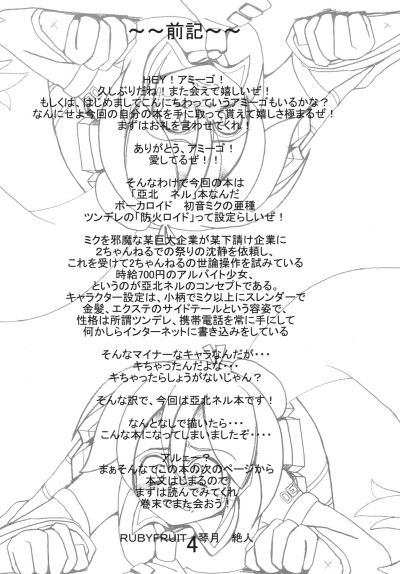 ～～前記～～
HEY！アミーゴ！
久しぶりだね！また会えて嬉しいぜ！
もしくは、はじめましてこんにちわっていうアミーゴもいるかな？
なんにせよ今回の自分の本を手に取って貰えて嬉しさ極まるぜ！
まずはお礼を言わせてくれ！
ありがとう、アミーゴ！
愛してるぜ！！
そんなわけで今回の本は
「亜北　ネル」本なんだ
ボーカロイド　初音ミクの亜種
ツンデレの「防火ロイド」って設定らしいぜ！
ミクを邪魔な某巨大企業が某下請け企業に
２ちゃんねるでの祭りの沈静を依頼し、
これを受けて２ちゃんねるの世論操作を試みている
時給700円のアルバイト少女、
というのが亜北ネルのコンセプトである。
キャラクター設定は、小柄でミク以上にスレンダーで
金髪、エクステのサイドテールという容姿で、
性格は所謂ツンデレ、携帯電話を常に手にして
何かしらインターネットに書き込みをしている
そんなマイナーなキャラなんだが・・・
キちゃったんだよな・・・
キちゃったらしょうがないじゃん？
そんな訳で、今回は亜北ネル本です！
なんとなしで描いたら・・・
こんな本になってしまいましたぞ・・・・
アルェー？
まぁそんなでこの本の次のページから
本文はじまるので
まずは読んでみてくれ
巻末でまた会おう！
RUBYFRUIT　琴月　絶人
4